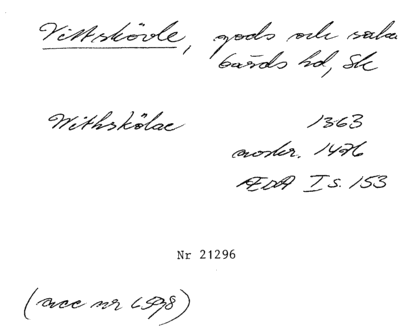 Vittskövle, gods och
bärds hd, Sk
Withskölae 1363
avskr. 1476
ÆDA I s. 153
Nr 21296
(acc nr 6598)